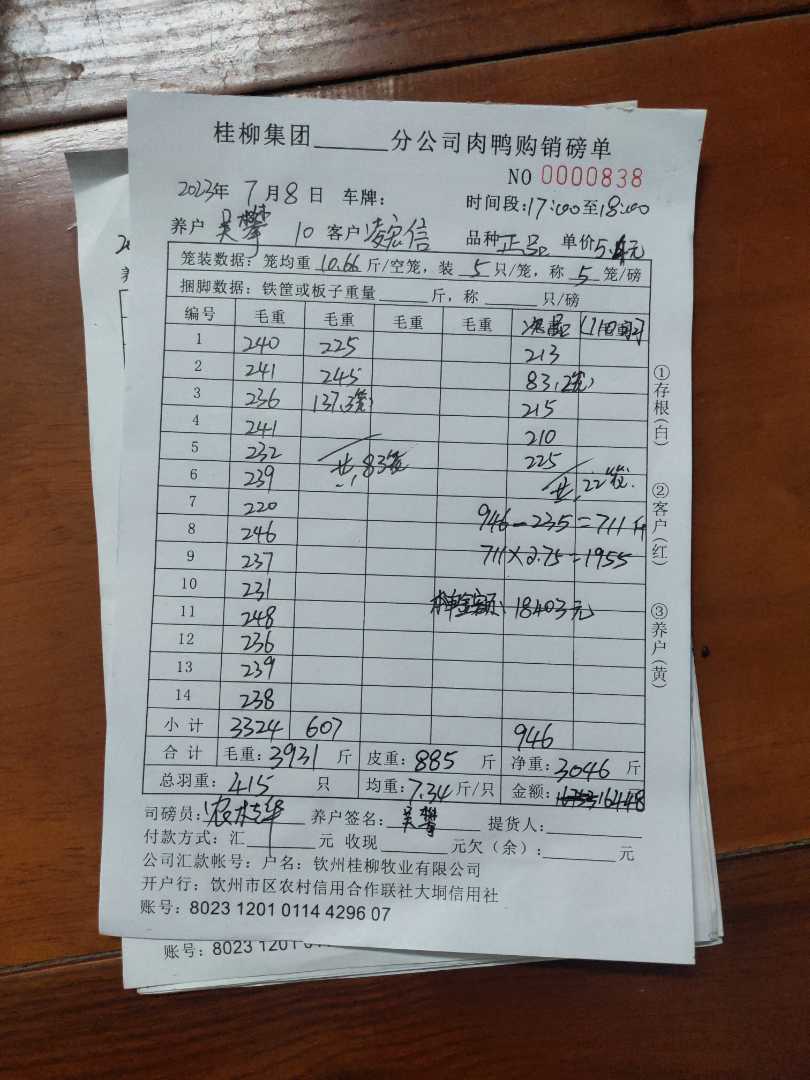 桂柳集团______分公司肉鸭购销磅单
NO 0000838
2023年 7月8日 车牌: 时间段:17:00至18:00
养户 吴攀 10 客户 凌宏信 品种 正品 单价5.4元
笼装数据: 笼均重 10.66 斤/空笼, 装 5 只/笼, 称 5 笼/磅
捆脚数据: 铁筐或板子重量______斤, 称______只/磅
编号 毛重 毛重 毛重 毛重 次品 (110只)
1 240 225 213
2 241 245 83(2笼)
3 236 137(3笼) 215
4 241 210
5 232 共83笼 225
6 239 共22笼
7 220 946-235=711斤
8 246 711×2.75=1955
9 237
10 231 18403元
11 248
12 236
13 239
14 238
小计 3324 607 946
合计 毛重:3931 斤 皮重:885 斤 净重:3046 斤
总羽重: 415 只 均重:7.34斤/只 金额:16448
司磅员: 养户签名: 吴攀 提货人:
付款方式: 汇______元 收现______元欠(余):______元
公司汇款帐号: 户名: 钦州桂柳牧业有限公司
开户行: 钦州市区农村信用合作联社大垌信用社
账号: 8023 1201 0114 4296 07
①存根(白)
②客户(红)
③养户(黄)
账号: 8023 1201 011